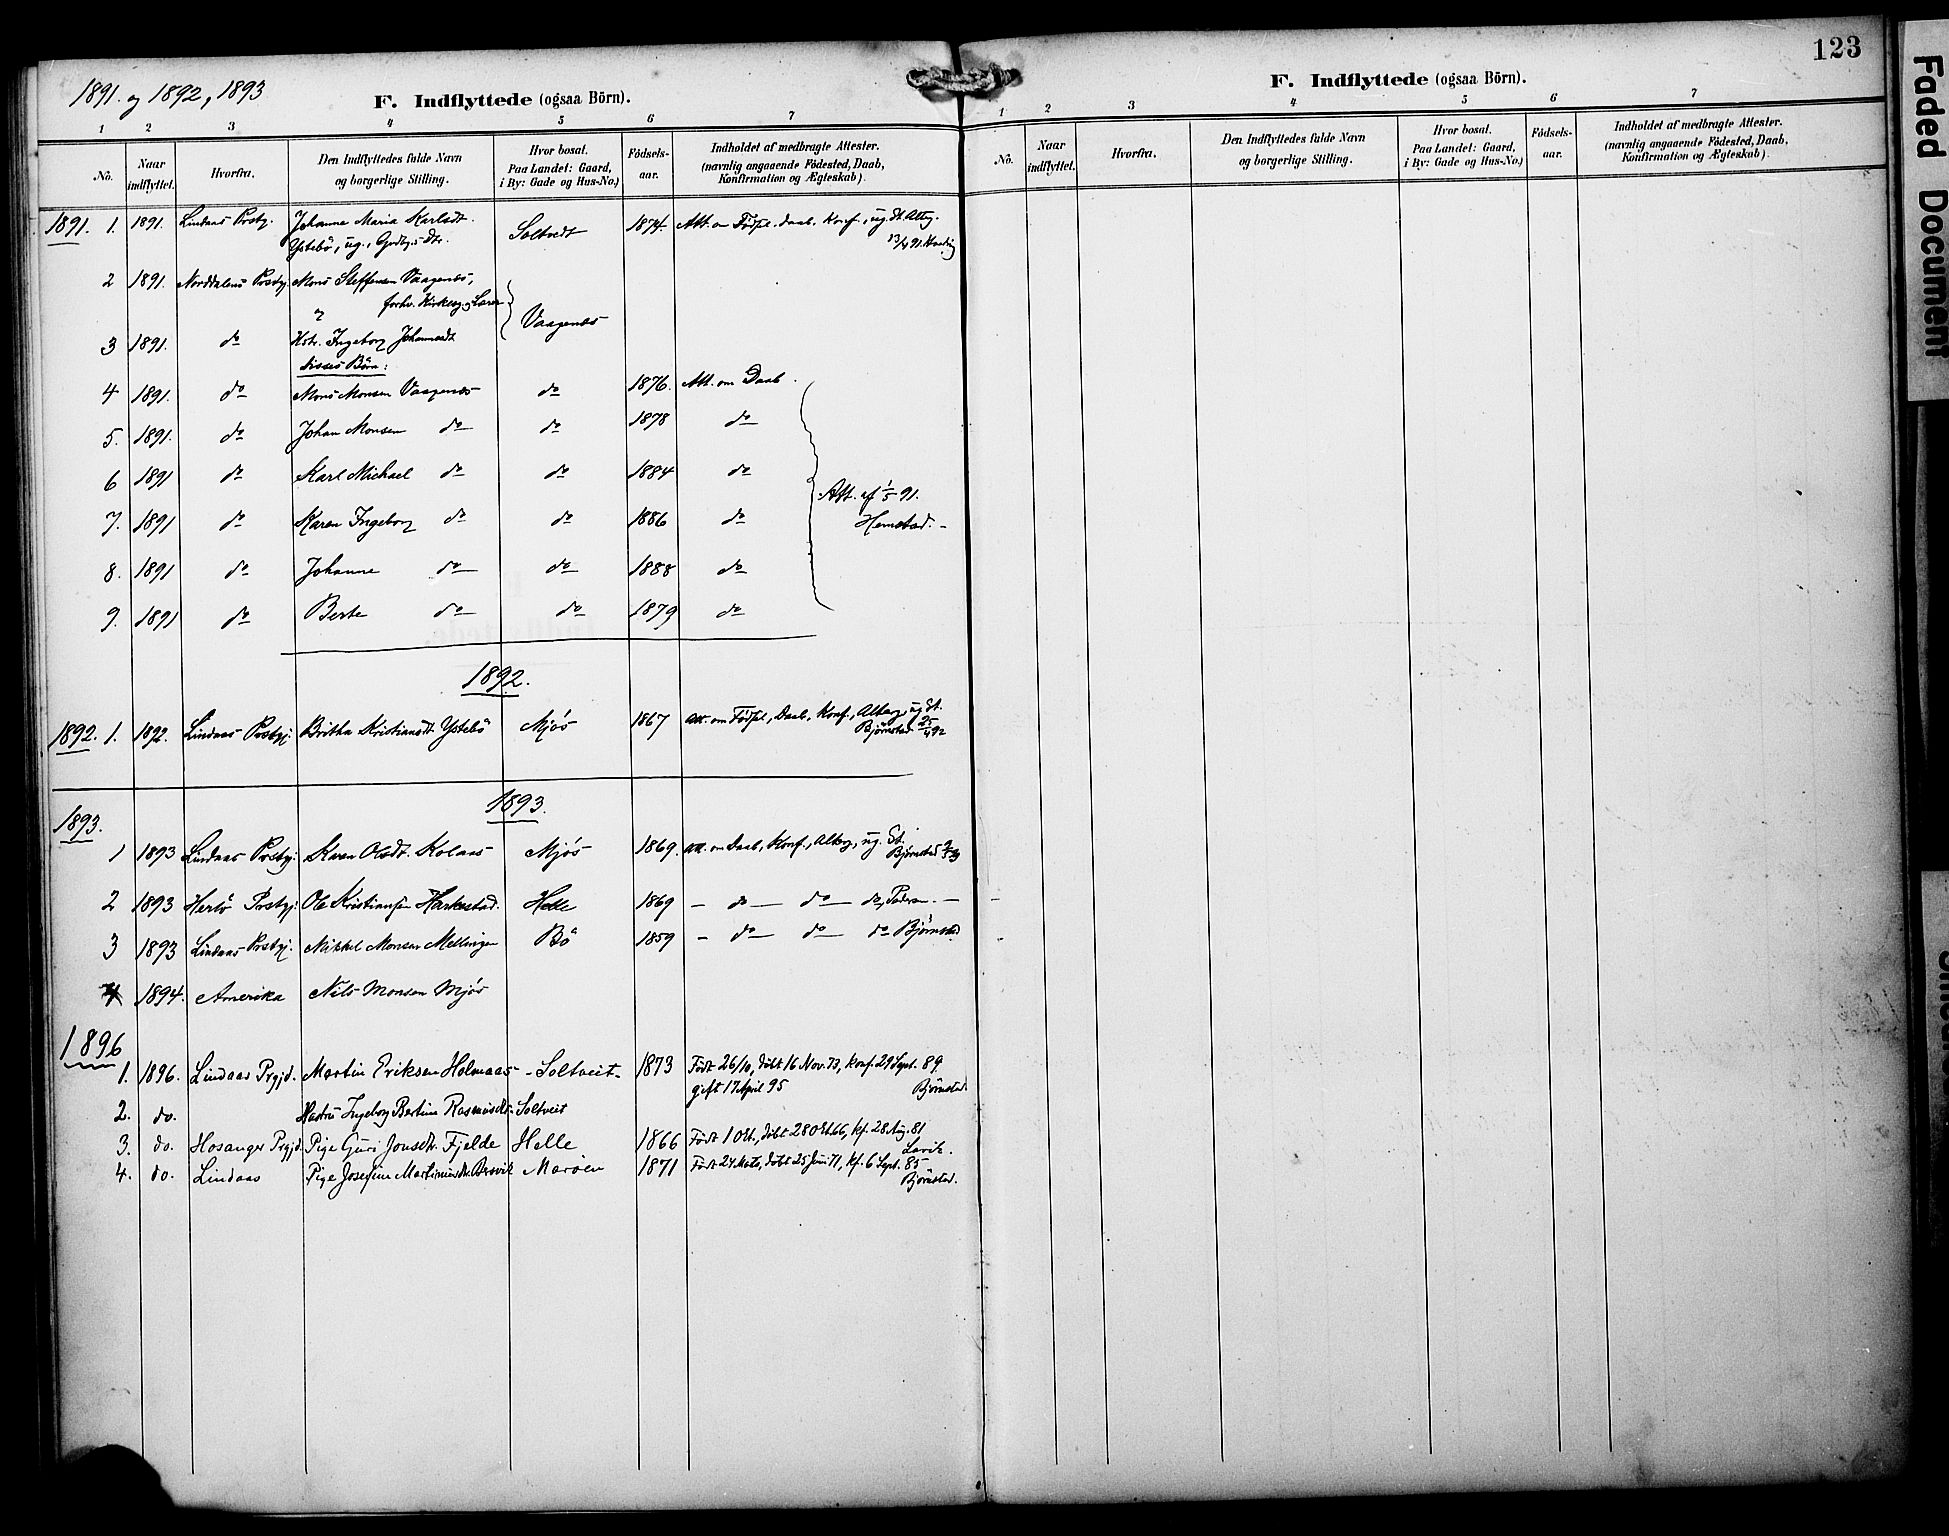 1891. og 1892, 1893
F. Indflyttede (ogsaa Börn).
1 2 3 4 5 6 7
No. Naar indflyttet. Hvorfra. Den Indflyttedes fulde Navn og borgerlige Stilling. Hvor bosat. Paa Landet: Gaard, i By: Gade og Hus-No.) Födsels-aar. Indholdet af medbragte Attester. (navnlig angaaende Födested, Daab, Konfirmation og Ægteskab).
1891. 1. 1891. Lindaas Prstgj. Johanne Maria Karlsdt. Soltvedt 1874. Att. om Födsel. Daab. Konf., ug. St. Altg.
Ystebö, ug., Gdbg.s Dtr. 13/4 91.
2 1891. Norddalens Prstgj. Mons Steffensen Vaagenæs,
og forhv. Kirkesg. og Lærer Vaagenæs
3 1891. do Hstr. Ingeborg Johannesdt
disses Börn:
4 1891. do Mons Monsen Vaagenæs do 1876. Att. om Daab.
5. 1891. do Johan Monsen do do 1878 do
6 1891 do Karl Michael do do 1884 do
Att. af 1/5 91.
7. 1891 do Karen Ingeborg do do 1886 do
Hemstad. -
8. 1891 do Johanne do do 1888 do
9. 1891 do Berte do do 1879 do
1892.
1892. 1. 1892. Lindaas Prstgj. Britha Kristiansdt. Ystebö Mjös 1867 Att. om Födsel, Daab, Konf., Alterg., ug St.
Björnstad 25/4 92
1893.
1893.
1 1893 Lindaas Prstgj. Karen Olsdt. Kolaas Mjös 1869. Att. om Daab, Konf., Alterg., ug. St.
Björnstad
2 1893 Herlö Prstgj. Ole Kristiansen Harkestad. Helle 1869 — do — do — do, —
3 1893 Lindaas Prstgj. Mikkel Monsen Mellingen Bö 1859 — do — do — do Björnstad
4 1894. Amerika Nils Monsen Mjös
1896
1. 1896. Lindaas Prgjd. Martin Eriksen Holmaas - Soltveit - 1873 Födt 26/10, döbt 16 Nov. 73, konf. 29 Sept. 89
gift 17 April 95 Björnstad
2. do. Hustru Ingeborg Bertine Rasmusdtr. Soltveit
3. do. Hosanger Prgjd. Pige Guri Jonsdtr. Fjelde Helle 1866 Födt 1 Okt., döbt 28 Okt 66, kf. 28 Aug. 81
Lavik.
4. do. Lindaas Pige Josefine Martinusdtr. Maröen 1871 Födt 24 Mats, döbt 25 Juni 71, kf. 6 Sept. 85
Björnstad.
123
F. Indflyttede (ogsaa Börn).
1 2 3 4 5 6 7
No. Naar indflyttet. Hvorfra. Den Indflyttedes fulde Navn og borgerlige Stilling. Hvor bosat. Paa Landet: Gaard, i By: Gade og Hus-No.) Födsels-aar. Indholdet af medbragte Attester. (navnlig angaaende Födested, Daab, Konfirmation og Ægteskab).
Faded Document